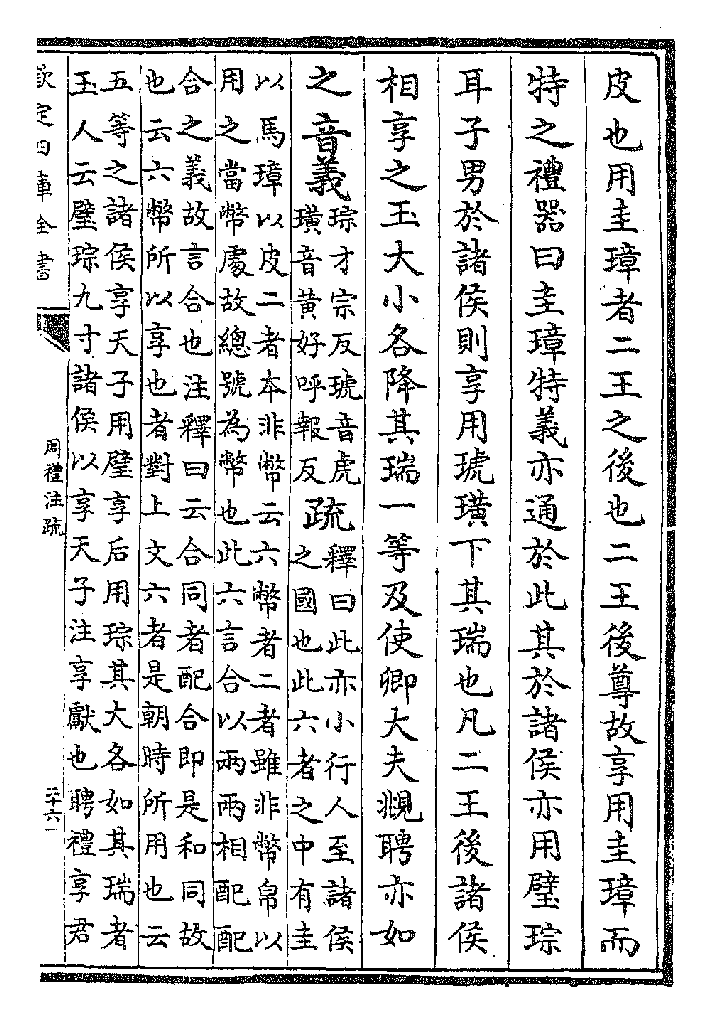 皮也用圭璋者二王之後也二王後尊故享用圭璋而
特之禮器曰圭璋特義亦通於此其於諸侯亦用璧琮
耳子男於諸侯則享用琥璜下其瑞也凡二王後諸侯
相享之玉大小各降其瑞一等及使卿大夫覜聘亦如
之音義琮才宗反琥音虎
璜音黃好呼報反
疏釋曰此亦小行人至諸侯
之國也此六者之中有圭
以馬璋以皮二者本非幣云六幣者二者雖非幣帛以
用之當幣處故總號為幣也此六言合以兩兩相配配
合之義故言合也注釋曰云合同者配合即是和同故
也云六幣所以享也者對上文六者是朝時所用也云
五等之諸侯享天子用璧享后用琮其大各如其瑞者
玉人云璧琮九寸諸侯以享天子注享獻也聘禮享君
欽定四庫全書
周禮注疏